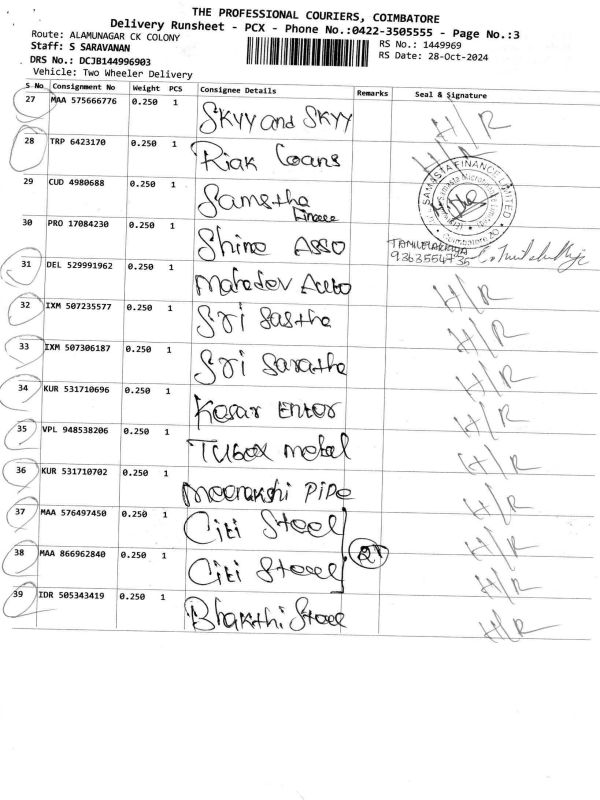 THE PROFESSIONAL COURIERS, COIMBATORE
Delivery Runsheet - PCX - Phone No.:0422-3505555 - Page No.:3
Route: ALAMUNAGAR CK COLONY
RS No.: 1449969
Staff: S SARAVANAN
RS Date: 28-Oct-2024
DRS No.: DCJB144996903
Vehicle: Two Wheeler Delivery
S No Consignment No Weight PCS Consignee Details Remarks Seal & Signature
27 MAA 575666776 0.250 1 Skyy and Skyy H/R
28 TRP 6423170 0.250 1 Riak Loans H/R
29 CUD 4980688 0.250 1 Samstha
Finance
SAMASTA FINANCE LIMITED
Coimbatore
30 PRO 17084230 0.250 1 Shine ASSO
9363554735
31 DEL 529991962 0.250 1 Mahadev Auto H/R
32 IXM 507235577 0.250 1 Sri Sastha H/R
33 IXM 507306187 0.250 1 Sri Saratha H/R
34 KUR 531710696 0.250 1 Kesar Enter H/R
35 VPL 948538206 0.250 1 Tubox metal H/R
36 KUR 531710702 0.250 1 Meenakshi Pipe H/R
37 MAA 576497450 0.250 1 Citi Steel H/R
38 MAA 866962840 0.250 1 Citi Steel H/R
39 IDR 505343419 0.250 1 Bhakthi Steel H/R